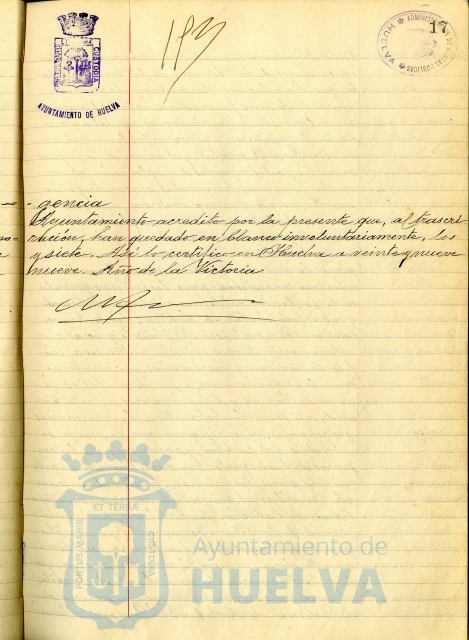 AYUNTAMIENTO DE HUELVA
CUSTODIA
HUELVA
17
- gencia
Ayuntamiento acredito por la presente que, al trascri-
ción, han quedado en blanco involuntariamente, los
y siete. Así lo certifico en Huelva a veinte y nueve
nueve. Año de la Victoria
PORTUS MARIS
ET TERRÆ
CUSTODIA
Ayuntamiento de
HUELVA